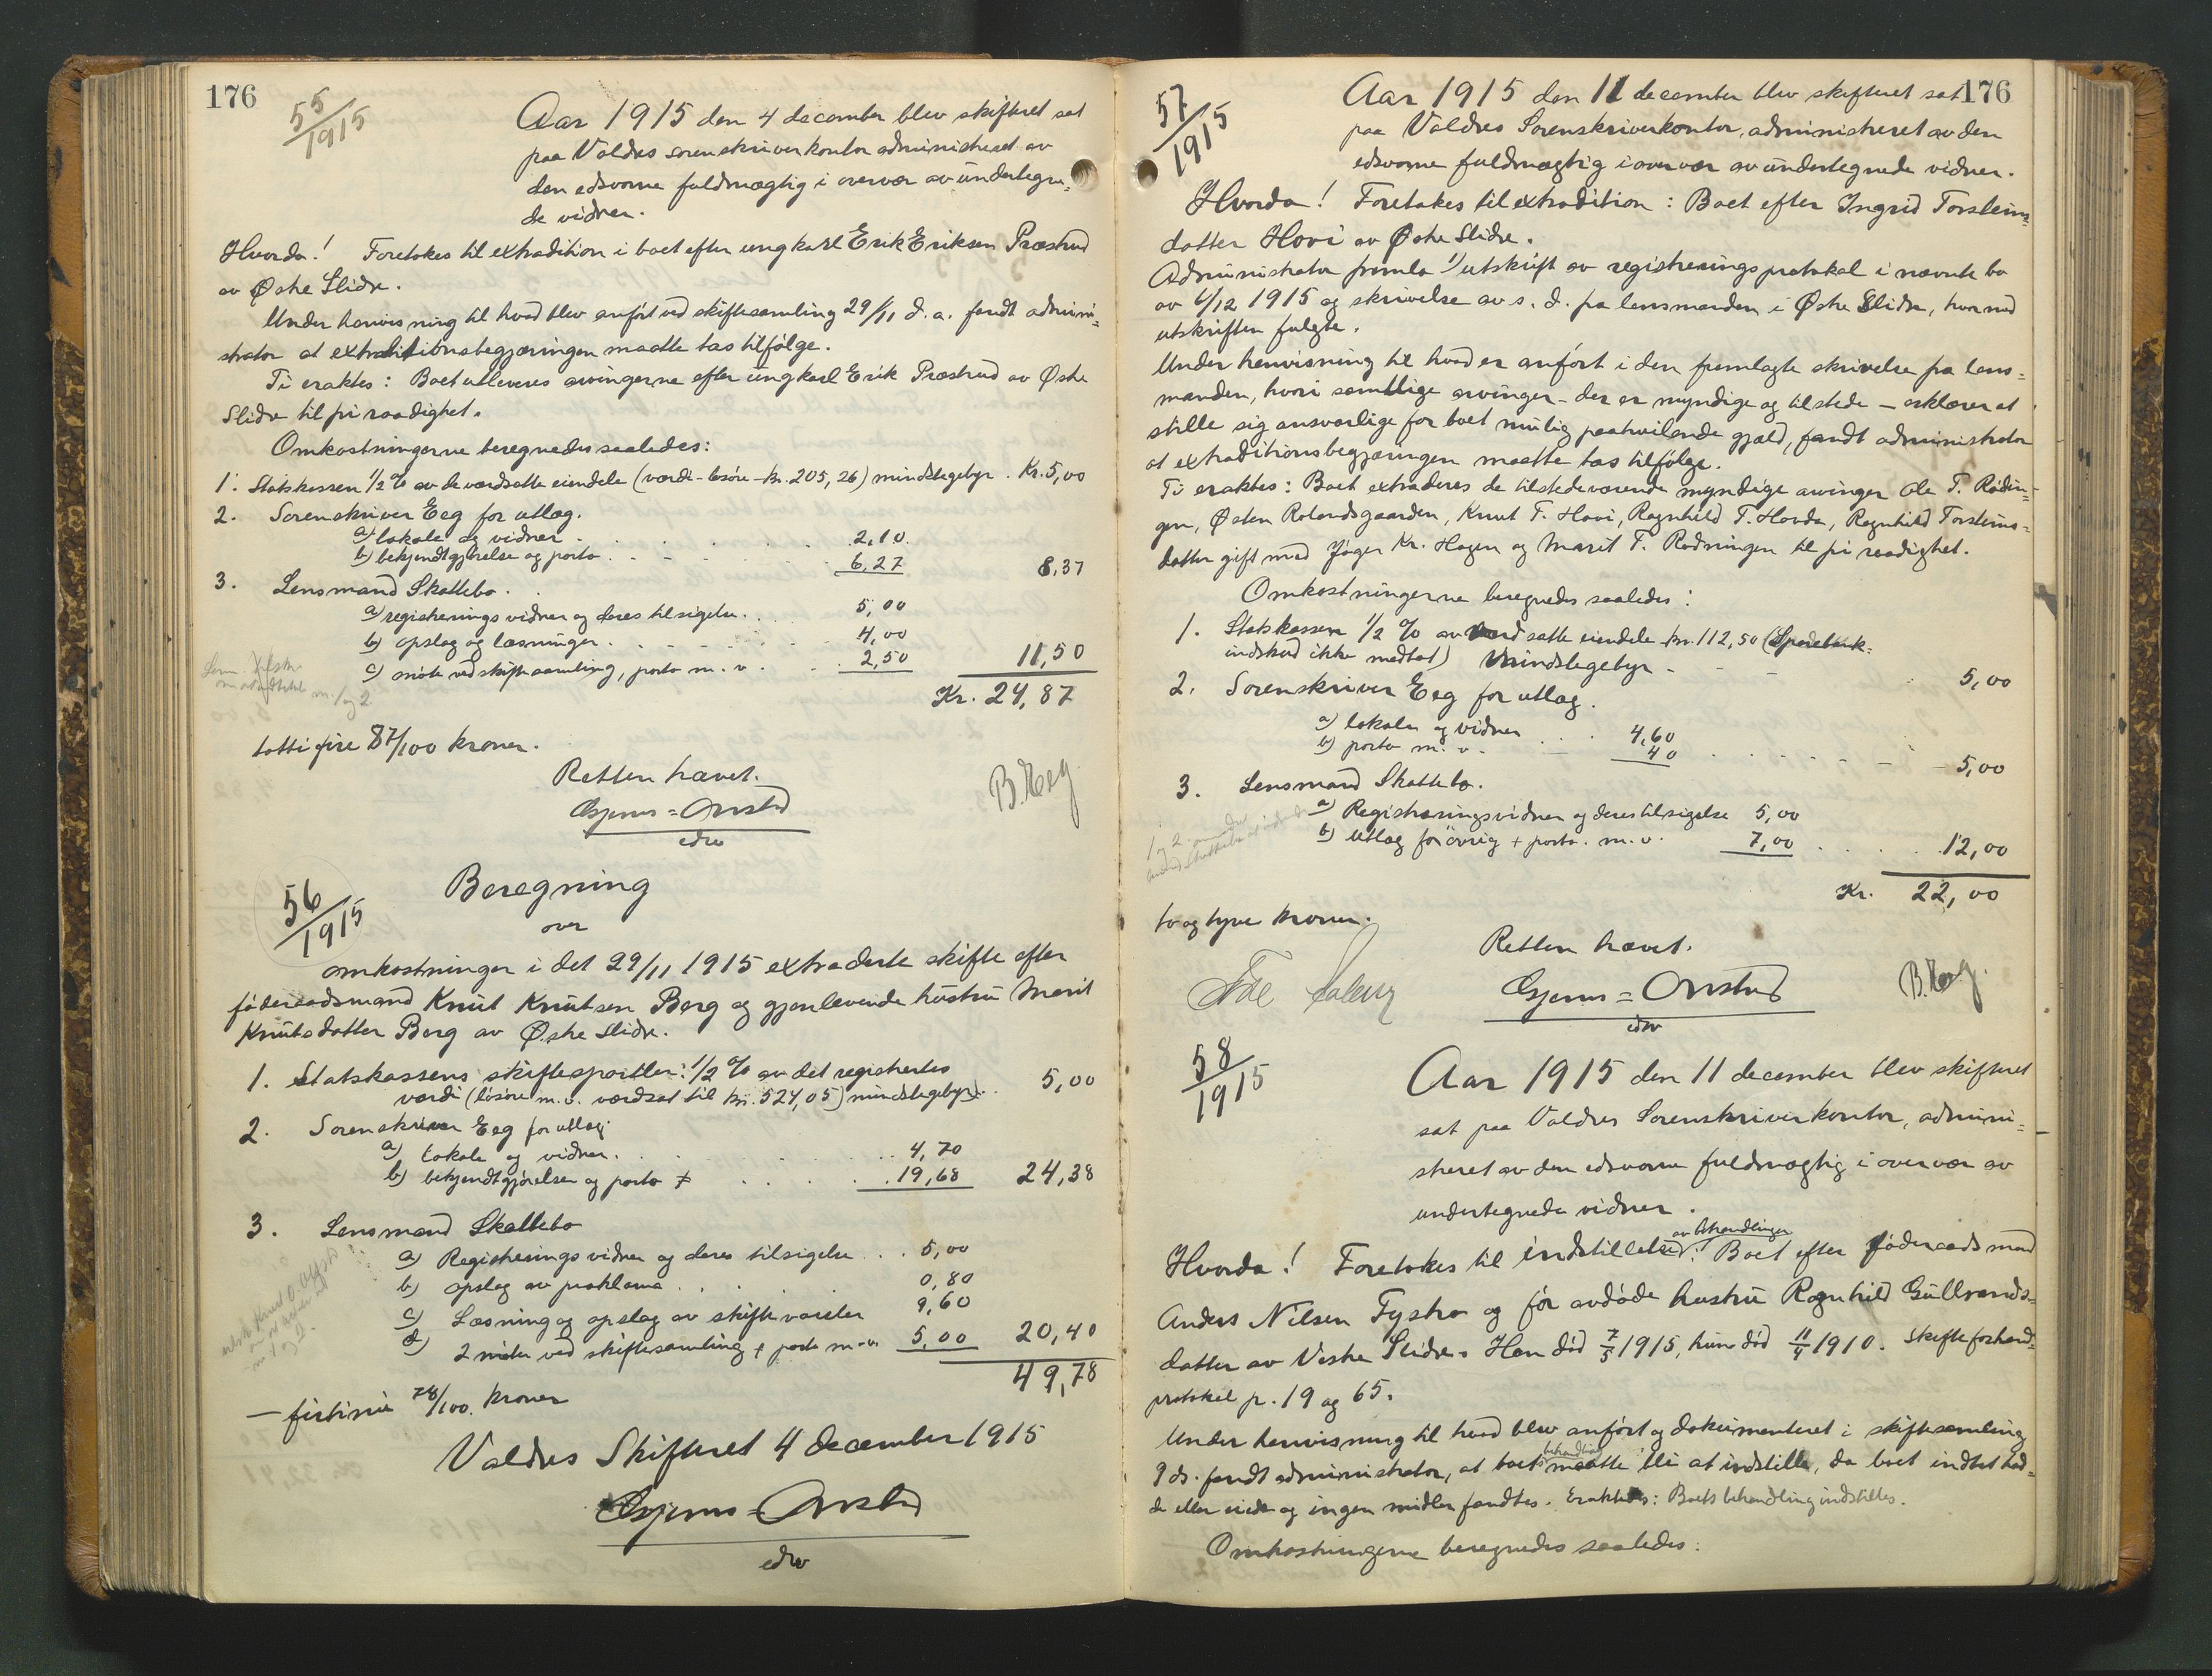 176
55/1915
Aar 1915 den 4 december blev skifteret sat
paa Valdres sorenskriverkontor administreret av
den edsvorne fuldmægtig i overvær av undertegne-
de vidner.
Hvorda! Foretokes til extradition i boet efter ungkarl Erik Eriksen Præstrud
av Østre Slidre.
Under henvisning til hvad blev anført ved skiftesamling 29/11 d.a. fandt admini-
strator at extraditionsbegjæringen maatte tas tilfølge.
Ti eraktes: Boet utleveres arvingerne efter ungkarl Erik Præstrud av Østre
Slidre til fri raadighet.
Omkostningerne beregnedes saaledes:
1. Statskassen 1/2 % av de værdsatte eiendele (værdi - løsøre - kr. 205,26) mindstegebyr. Kr. 5,00
2. Sorenskriver Eeg for utlæg.
a) lokale og vidner . 2,10
b) bekjendtgjørelse og porto . 6,27 8,37
3. Lensmand Skattebo.
a) registrerings vidner og deres tilsigelse . 5,00
b) opslag og læsninger . 4,00
c) møte ved skiftesamling, porto m.v. 2,50 11,50
Kr. 24,87
m. 1 og 2
totti fire 87/100 kroner.
Retten hævet.
Gjerus=Onstad
edsv
B. Eeg
56/1915
Beregning
over
omkostninger i det 29/11 1915 extraderte skifte efter
føderaadsmand Knut Knutsen Berg og gjenlevende hustru Marit
Knutsdatter Berg av Østre Slidre.
1. Statskassens skiftesportler: 1/2 % av det registrertes
værdi (løsøre m.v. værdsat til kr. 524,05) mindstegebyr. 5,00
2. Sorenskriver Eeg for utlæg
a) Lokale og vidner . 4,70
b) bekjendtgjørelser og porto . 19,68 24,38
3. Lensmand Skattebo
a) Registrerings vidner og deres tilsigelse . . 5,00
b) opslag av proklama . 0,80
c) Læsning og opslag av skiftevarsler 9,60
d) 2 møter ved skiftesamling + porto m.v. 5,00 20,40
49,78
m 1 og 2.
— firtini 78/100 kroner
Valdres Skifteret 4 december 1915
Gjerus=Onstad
edsv
176
57/1915
Aar 1915 den 11 december blev skifteret sat
paa Valdres Sorenskriverkontor, administreret av den
edsvorne fuldmægtig i overvær av undertegnede vidner.
Hvorda! Foretokes til extradition: Boet efter Ingrid Torsteins-
datter Hovi av Østre Slidre.
Administrator fremla 1/ utskrift av registreringsprotokol i nævnte bo
av 6/12 1915 og skrivelse av s. d. fra lensmanden i Østre Slidre, hvormed
utskriften fulgte.
Under henvisning til hvad er anført i den fremlagte skrivelse fra lens-
manden, hvori samtlige arvinger - der er myndige og tilstede - erklærer at
stille sig ansvarlige for boet mulig paahvilende gjæld, fandt administrator
at extraditionsbegjæringen maatte tas tilfølge.
Ti eraktes: Boet extraderes de tilstedeværende myndige arvinger Ole T. Rødnin-
gen, Østen Rolandsgaarden, Knut T. Hovi, Ragnhild T. Hovda, Ragnhild Torsteins-
datter gift med Jøger Kr. Hagen og Marit T. Rødningen til fri raadighet.
Omkostningerne beregnedes saaledes:
1. Statskassen 1/2 % av værdsatte eiendele kr. 112,50 (Sparebank-
indskud ikke medtat) Mindstegebyr - 5,00
2. Sorenskriver Eeg for utlæg.
a) lokaler og vidner . . . 4,60
b) porto m.v. 40 5,00
3. Lensmand Skattebo.
a) Registreringsvidner og deres tilsigelse 5,00
b) Utlæg forøvrig + porto. m.v. 7,00 12,00
Kr. 22,00
to og tyve kroner.
Retten hævet.
Gjerus=Onstad
edsv
B. Eeg.
58/1915
Aar 1915 den 11 december blev skifteret
sat paa Valdres Sorenskriverkontor, admini-
streret av den edsvorne fuldmægtig i overvær av
undertegnede vidner.
av behandlingen
Hvorda! Foretokes til indstillelse: Boet efter føderaadsmand
Anders Nilsen Fystro og før avdøde hustru Ragnhild Gullvands-
datter av Vestre Slidre. Han død 7/5 1915, hun død 11/4 1910. Skifteforhand.
protokol p. 19 og 65.
Under henvisning til hvad blev anført og dokumenteret i skiftesamling
behandling
9 ds. fandt administrator, at boets maatte bli at indstille, da boet indtet had-
de eller eiede og ingen midler fandtes. Eraktedes: Boets behandling indstilles.
Omkostningerne beregnedes saaledes: